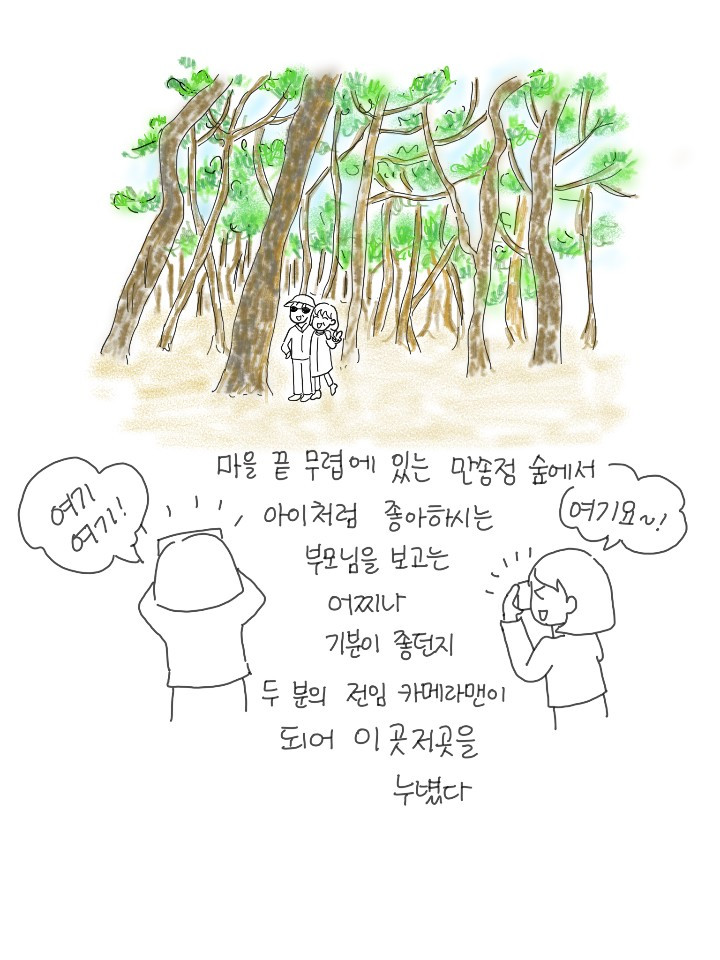 마을 끝 무렵에 있는 만송정 숲에서
여기
여기!
여기요~!
아이처럼 좋아하시는
부모님을 보고는
어찌나
기분이 좋던지
두 분의 전임 카메라맨이
되어 이곳저곳을
누볐다